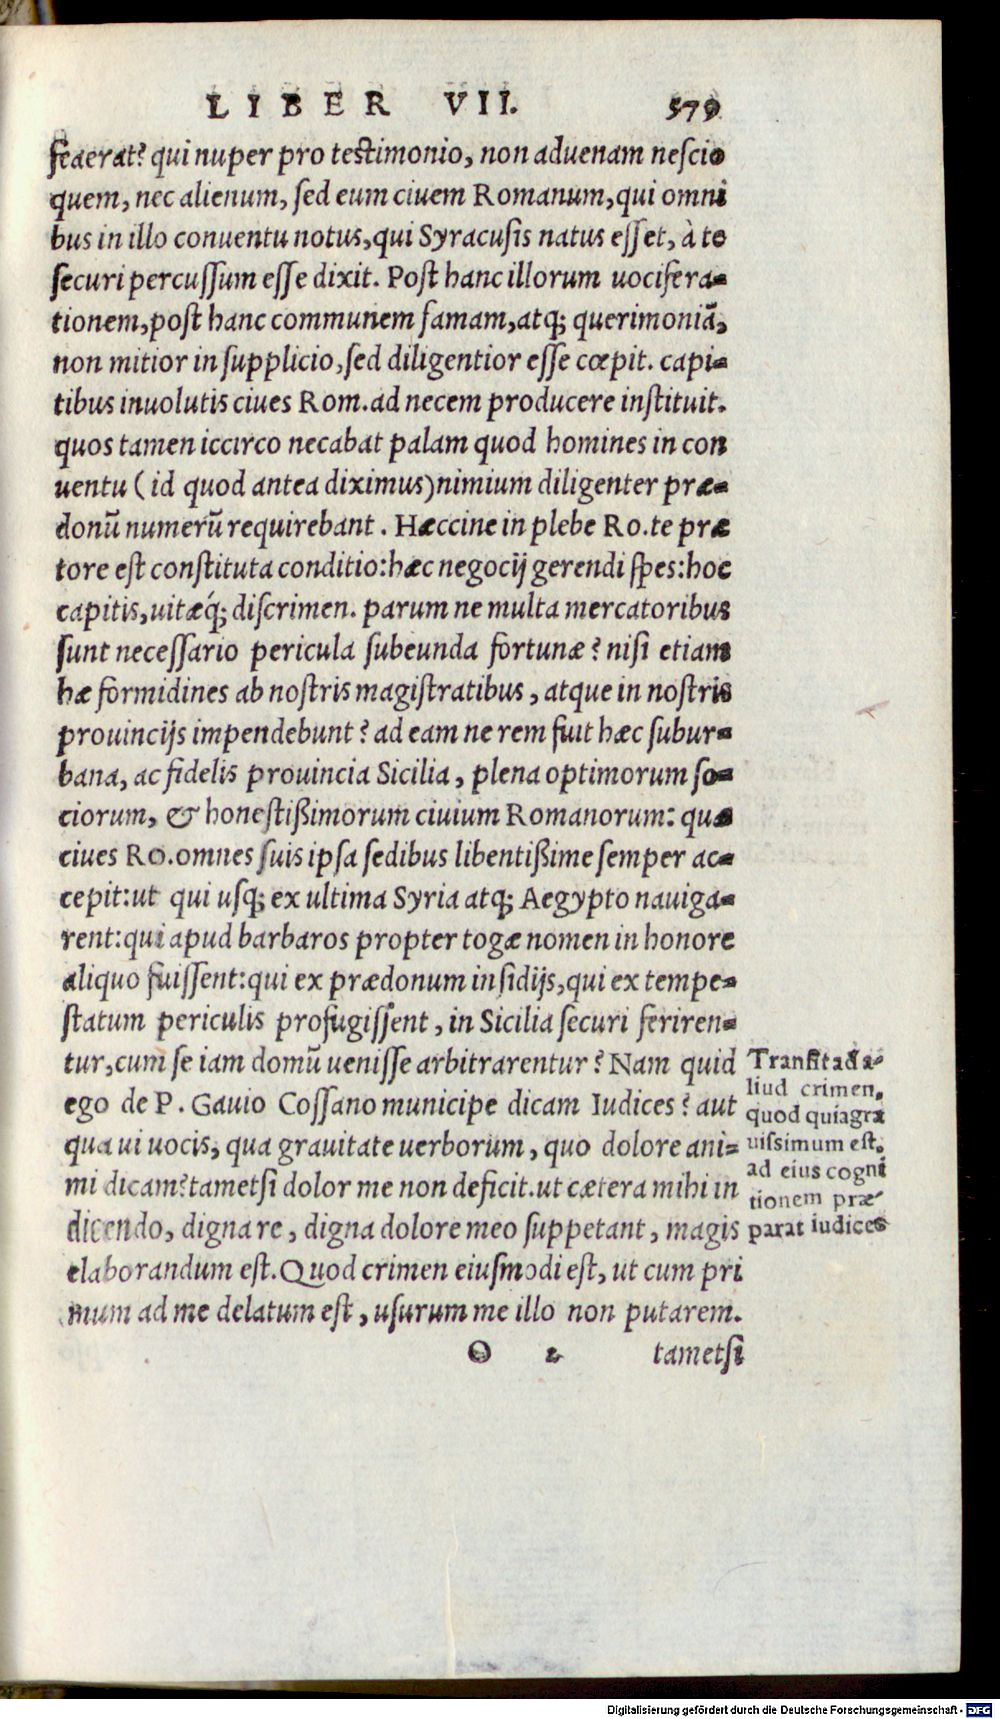 LIBER VII. 579
fœderat? qui nuper pro testimonio, non aduenam nescio
quem, nec alienum, sed eum ciuem Romanum, qui omni
bus in illo conuentu notus, qui Syracusis natus esset, à te
securi percussum esse dixit. Post hanc illorum uocifera-
tionem, post hanc communem famam, atq; querimoniã,
non mitior in supplicio, sed diligentior esse cœpit. capi-
tibus inuolutis ciues Rom. ad necem producere instituit.
quos tamen iccirco necabat palam quod homines in con
uentu (id quod antea diximus) nimium diligenter præ-
donũ numerũ requirebant. Hæccine in plebe Ro. te præ
tore est constituta conditio: hæc negocij gerendi spes: hoc
capitis, uitæq́; discrimen. parum ne multa mercatoribus
sunt necessario pericula subeunda fortunæ? nisi etiam
hæ formidines ab nostris magistratibus, atque in nostris
prouincijs impendebunt? ad eam ne rem fuit hæc subur-
bana, ac fidelis prouincia Sicilia, plena optimorum so-
ciorum, & honestißimorum ciuium Romanorum: quæ
ciues Ro. omnes suis ipsa sedibus libentißime semper ac-
cepit: ut qui usq; ex ultima Syria atq; Aegypto nauiga-
rent: qui apud barbaros propter togæ nomen in honore
aliquo fuissent: qui ex prædonum insidijs, qui ex tempe-
statum periculis profugissent, in Sicilia securi feriren-
tur, cum se iam domũ uenisse arbitrarentur? Nam quid
ego de P. Gauio Cossano municipe dicam Iudices? aut
qua ui uocis, qua grauitate uerborum, quo dolore ani-
mi dicam? tametsi dolor me non deficit. ut cætera mihi in
dicendo, digna re, digna dolore meo suppetant, magis
elaborandum est. Quod crimen eiusmodi est, ut cum pri
mum ad me delatum est, usurum me illo non putarem.
O 2 tametsi
Transit ad a-
liud crimen,
quod quia gra
uissimum est,
ad eius cogni
tionem præ-
parat iudices
Digitalisierung gefördert durch die Deutsche Forschungsgemeinschaft - DFG